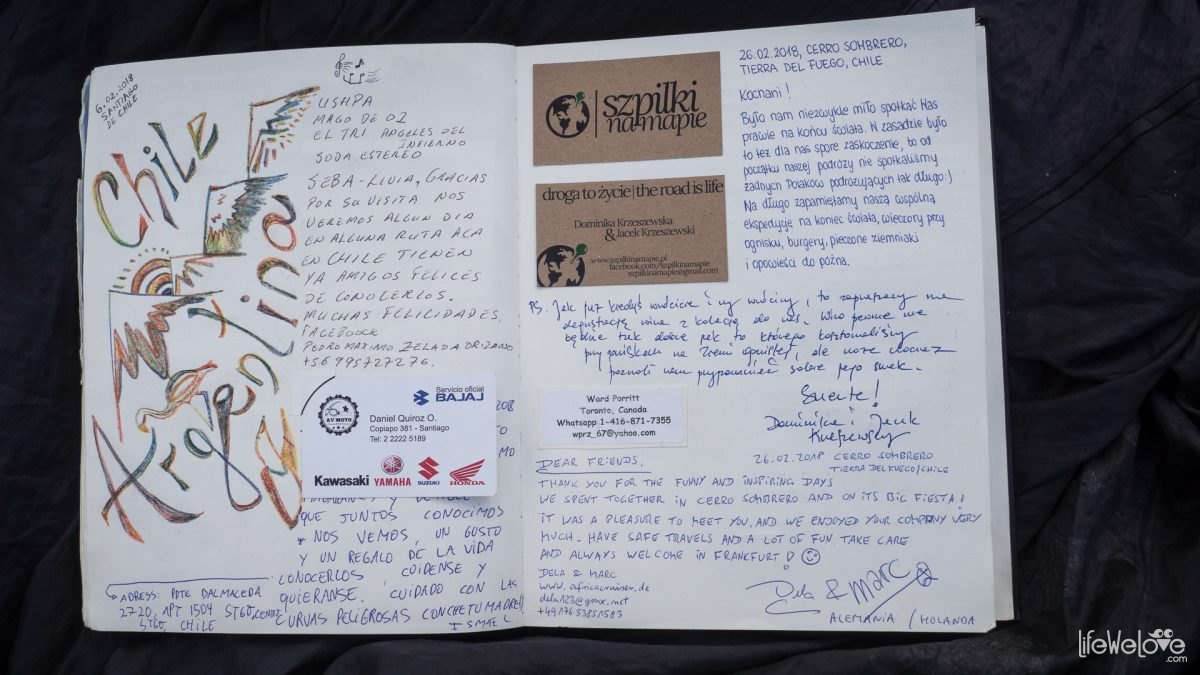 6.02.2018
SANTIAGO
DE CHILE
Chile
Argentina
USHPA
MAGO DE OZ
EL TRI ANGELES DEL
INFIERNO
SODA ESTEREO
SEBA-LIVIA, GRACIAS
POR SU VISITA NOS
VEREMOS ALGUN DIA
EN ALGUNA RUTA ACA
EN CHILE TIENEN
YA AMIGOS FELICES
DE CONOCERLOS.
MUCHAS FELICIDADES.
FACEBOOK
PEDRO MAXIMO ZELADA DRIZANSO
+56 995727276.
Servicio oficial
BAJAJ
AV MOTO
Daniel Quiroz O.
Copiapo 381 - Santiago
Tel: 2 2222 5189
Kawasaki YAMAHA SUZUKI HONDA
QUE JUNTOS CONOCIMOS
NOS VEMOS, UN GUSTO
Y UN REGALO DE LA VIDA
CONOCERLOS CUIDENSE Y
QUIERANSE. CUIDADO CON LAS
CURVAS PELIGROSAS CONCHETUMADRE!
ISMAEL
ADRESS: PDTE DALMACEDA
2720, APT 1504 STGO, CENTRE
STGO, CHILE
szpilki
na mapie
droga to życie | the road is life
Dominika Krzeszewska
& Jacek Krzeszewski
www.szpilkinamapie.pl
facebook.com/szpilkinamapie
szpilkinamapie@gmail.com
26.02.2018, CERRO SOMBRERO,
TIERRA DEL FUEGO, CHILE
Kochani!
Było nam niezwykle miło spotkać Was
prawie na końcu świata. W zasadzie było
to też dla nas spore zaskoczenie, bo od
początku naszej podróży nie spotkaliśmy
żadnych Polaków podróżujących tak długo:)
Na długo zapamiętamy naszą wspólną
ekspedycję na koniec świata, wieczory przy
ognisku, burgery, pieczone ziemniaki
i opowieści do późna.
PS. Jak już kiedyś wrócicie i my wrócimy, to zapraszamy na
degustację wina z kolacją do nas. Wino pewnie nie
będzie tak dobre jak to którego kosztowaliśmy
przy ognisku na Ziemi Ognistej, ale może chociaż
pozwoli nam przypomnieć sobie jego smak.
Suerte!
Dominika i Jacek
Krzeszewscy
Ward Porritt
Toronto, Canada
Whatsapp 1-416-871-7355
wprz_67@yahoo.com
26.02.2018 CERRO SOMBRERO
TIERRA DEL FUEGO/CHILE
DEAR FRIENDS,
THANK YOU FOR THE FUNNY AND INSPIRING DAYS
WE SPENT TOGETHER IN CERRO SOMBRERO AND ON ITS BIG FIESTA!
IT WAS A PLEASURE TO MEET YOU, AND WE ENJOYED YOUR COMPANY VERY
MUCH. HAVE SAFE TRAVELS AND A LOT OF FUN. TAKE CARE
AND ALWAYS WELCOME IN FRANKFURT!
DELA & MARC
www.africacruiser.de
dela123@gmx.net
+49 176 53851583
Dela & Marc
ALEMANIA / HOLANDA
lifeWeLove
.com